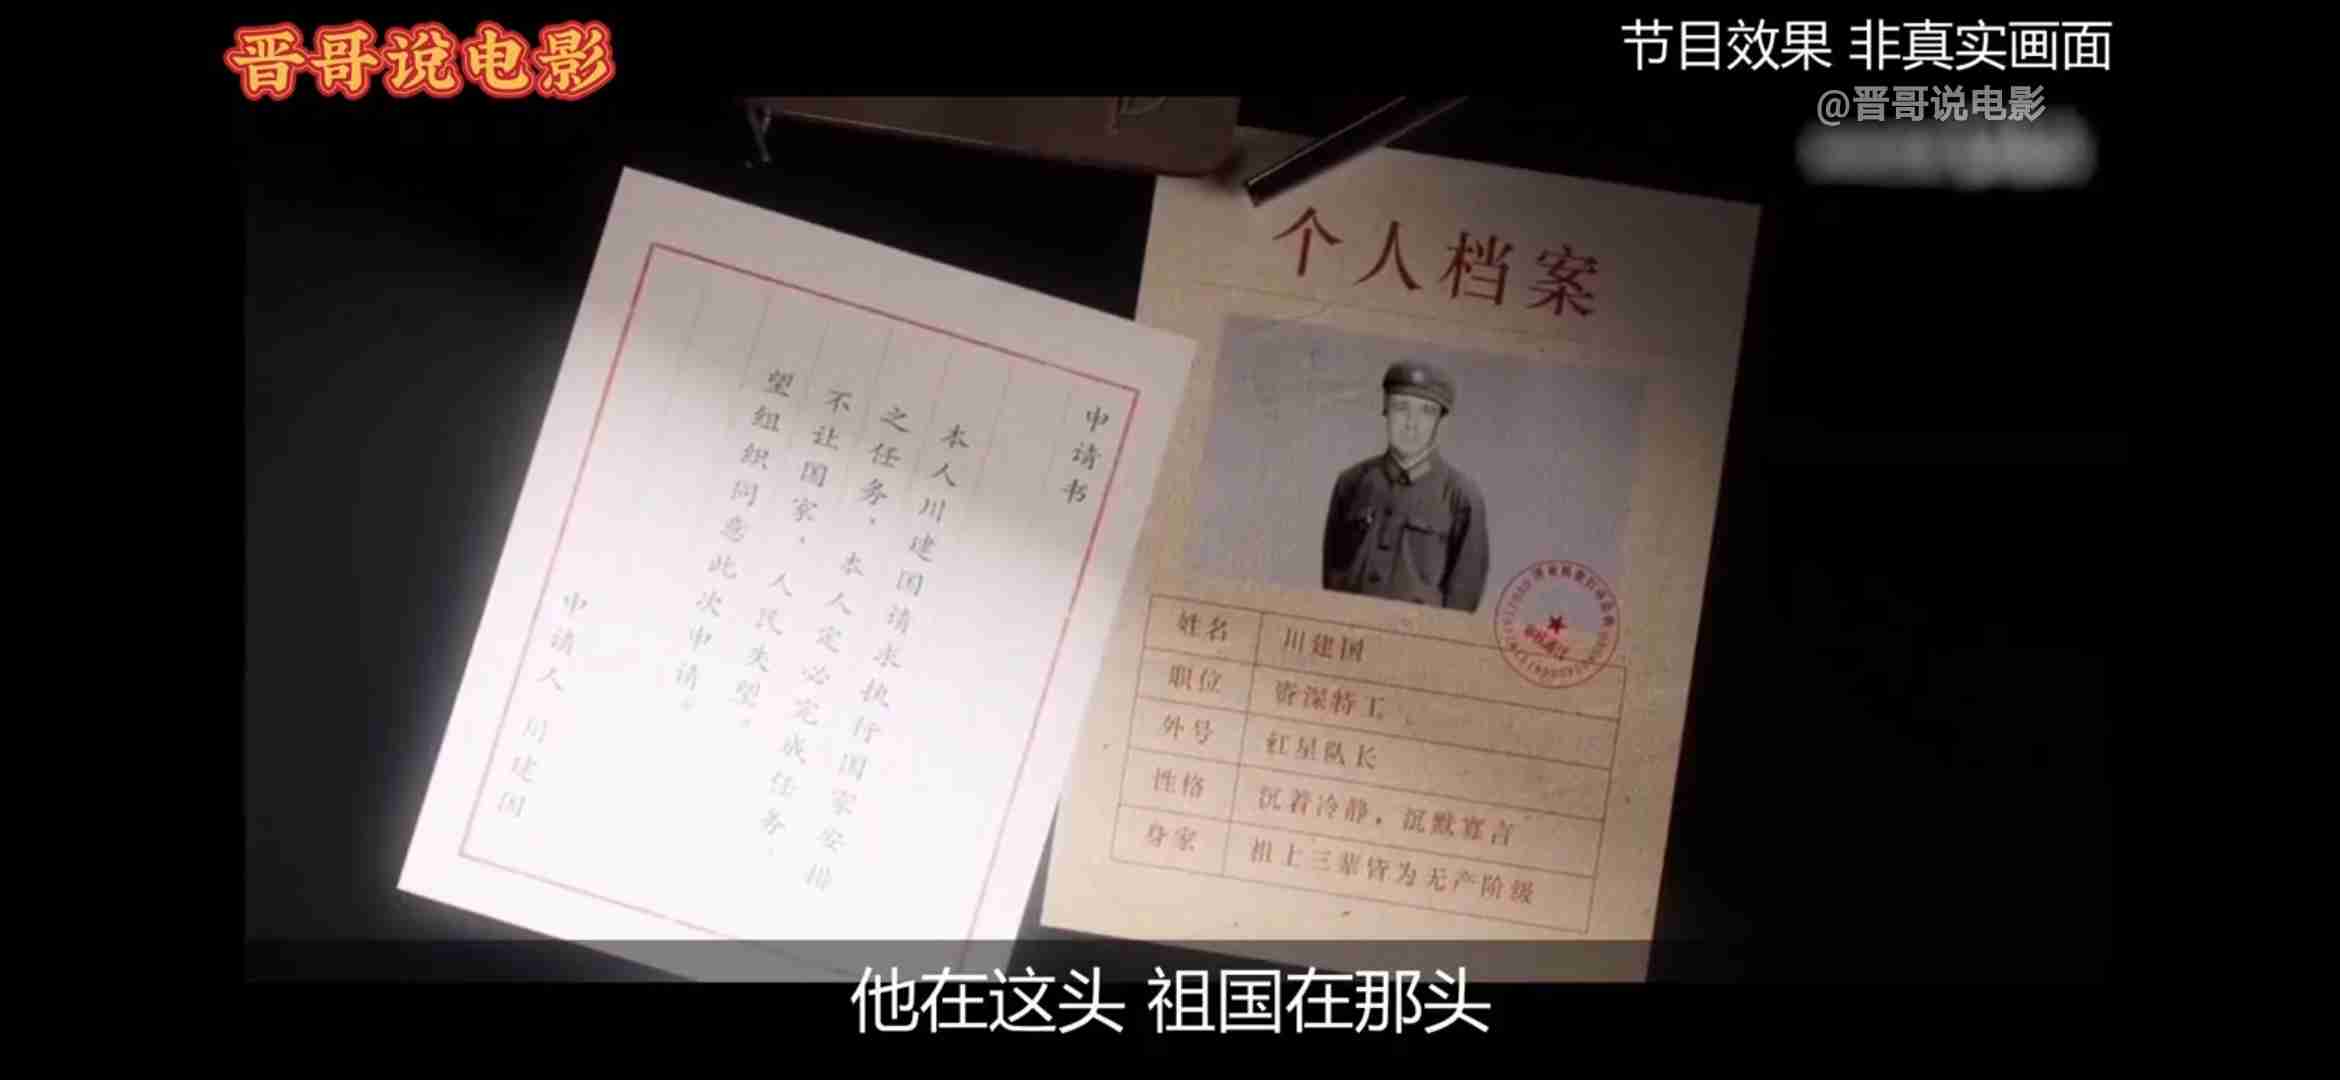 晋哥说电影
节目效果 非真实画面
@晋哥说电影
申请书
本人川建国请求执行国家安排
之任务，本人定必完成任务，
不让国家，人民失望。
望组织同意此次申请。
申请人 川建国
个人档案
姓名 川建国
职位 资深特工
外号 红星队长
性格 沉着冷静，沉默寡言
身家 祖上三辈皆为无产阶级
他在这头 祖国在那头